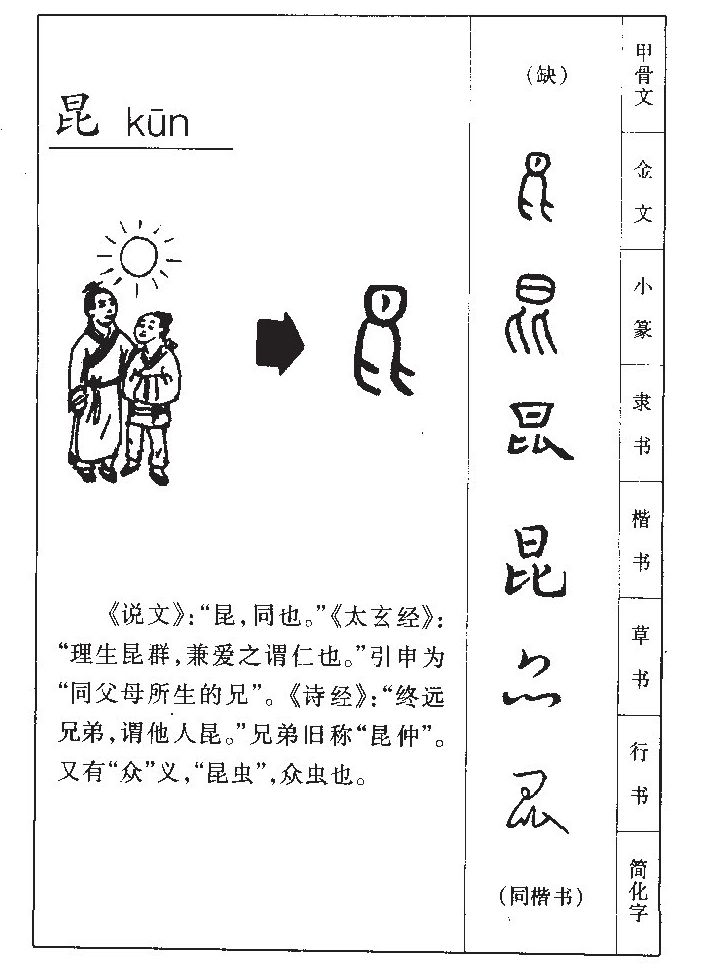 昆 kūn
《说文》：“昆，同也。”《太玄经》：
“理生昆群，兼爱之谓仁也。”引申为
“同父母所生的兄”。《诗经》：“终远
兄弟，谓他人昆。”兄弟旧称“昆仲”。
又有“众”义，“昆虫”，众虫也。
（缺） 甲骨文
昆 金文
昆 小篆
昆 隶书
昆 楷书
昆 草书
昆 行书
（同楷书） 简化字